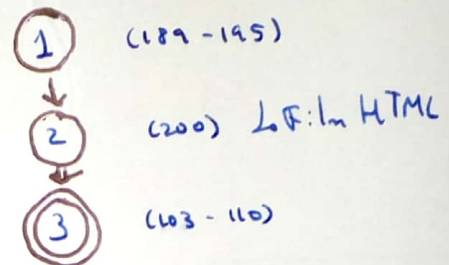 1 (189 - 195)
2 (200) LoF:ln HTML
3 (103 - 110)